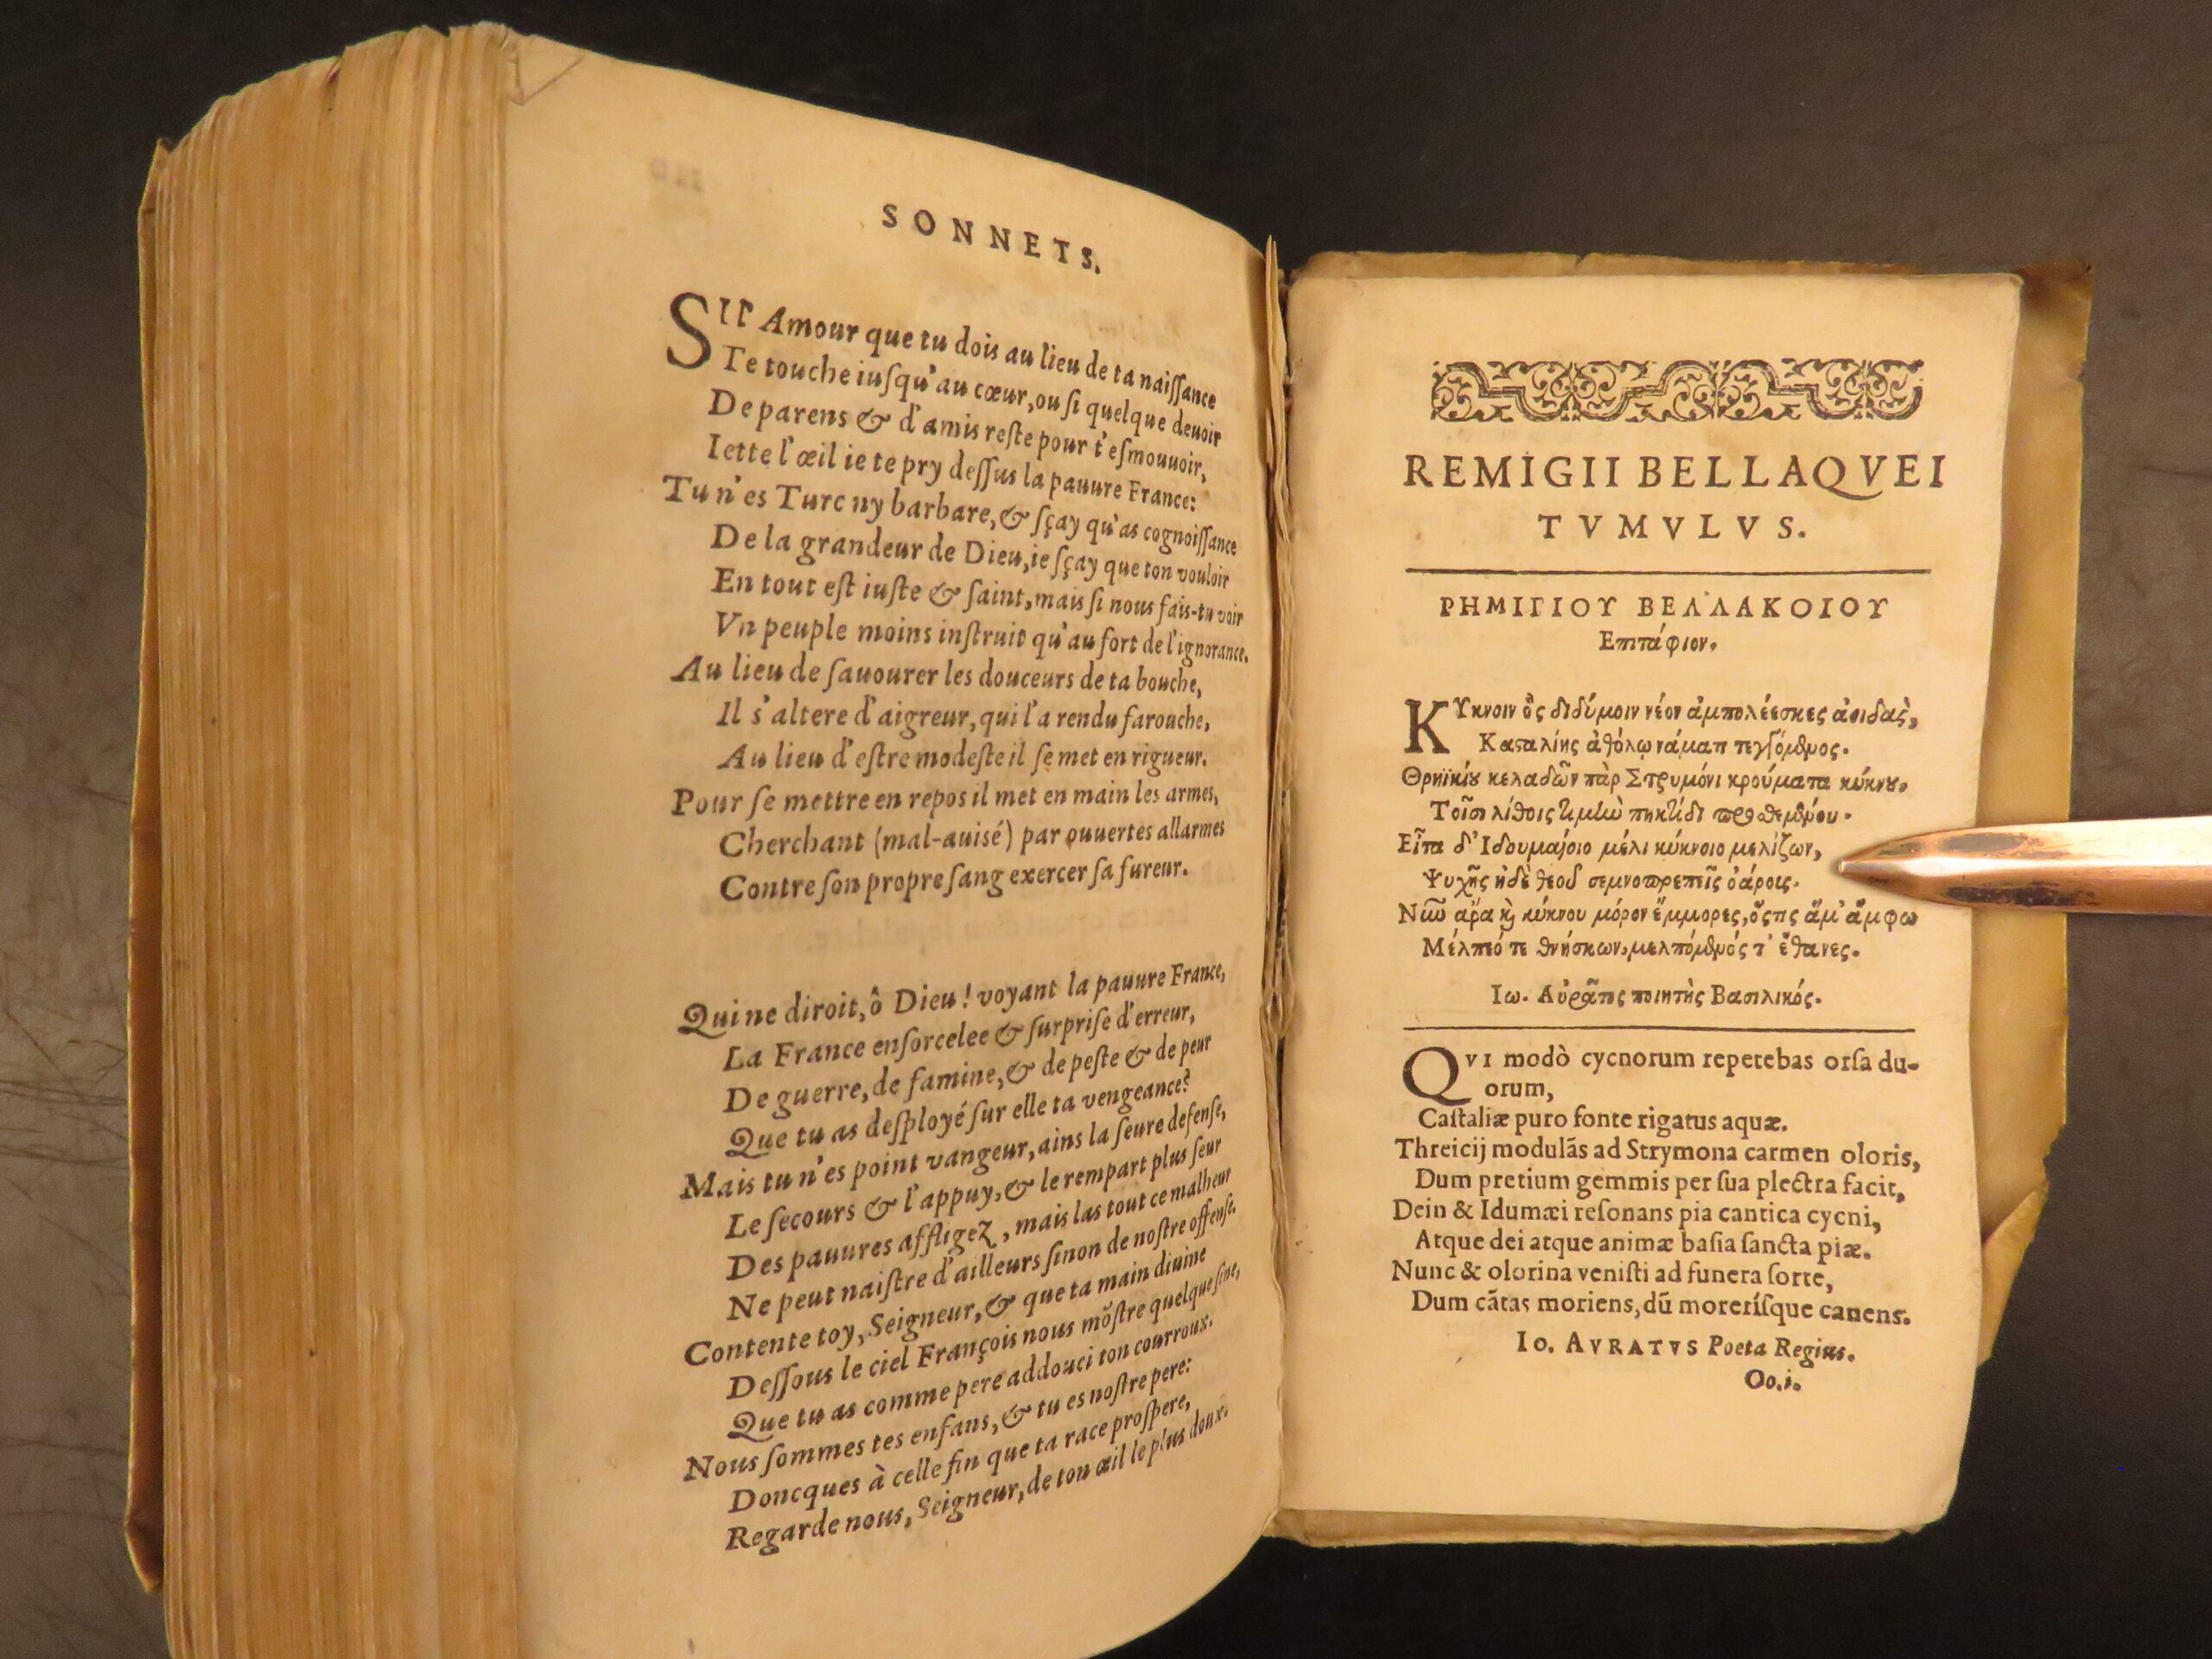 SONNETS.
SIl' Amour que tu dois au lieu de ta naiſſance
Te touche iuſqu'au cœur, ou ſi quelque deuoir
De parens & d'amis reſte pour t'eſmouuoir,
Iette l'œil ie te pry deſſus la pauure France:
Tu n'es Turc ny barbare, & ſçay qu'as cognoiſſance
De la grandeur de Dieu, ie ſçay que ton vouloir
En tout eſt iuſte & ſaint, mais ſi nous fais-tu voir
Vn peuple moins inſtruit qu'au fort de l'ignorance.
Au lieu de ſauourer les douceurs de ta bouche,
Il s'altere d'aigreur, qui l'a rendu farouche,
Au lieu d'eſtre modeſte il ſe met en rigueur.
Pour ſe mettre en repos il met en main les armes,
Cherchant (mal-auisé) par ouuertes allarmes
Contre ſon propre ſang exercer ſa fureur.
Qui ne diroit, ô Dieu! voyant la pauure France,
La France enſorcelee & ſurpriſe d'erreur,
De guerre, de famine, & de peſte & de peur
Que tu as deſployé ſur elle ta vengeance?
Mais tu n'es point vangeur, ains la ſeure defenſe,
Le ſecours & l'appuy, & le rempart plus ſeur
Des pauures affligez, mais las tout ce malheur
Ne peut naiſtre d'ailleurs ſinon de noſtre offenſe.
Contente toy, Seigneur, & que ta main diuine
Deſſous le ciel François nous mõſtre quelque ſine,
Que tu as comme pere addouci ton courroux.
Nous ſommes tes enfans, & tu es noſtre pere:
Doncques à celle fin que ta race proſpere,
Regarde nous, Seigneur, de ton œil le plus doux.
REMIGII BELLAQVEI
TVMVLVS.
ΡΗΜΙΓΙΟΥ ΒΕΛΛΑΚΟΙΟΥ
Επιτάφιον.
ΚΥκνοιν ὃς διδύμοιν νέον ἀμπολέεσκες ἀοιδὰς,
Κασταλίης ἀθόλῳ νάματι τεγγόμενος.
Θρηϊκίου κελαδῶν πὰρ Στρυμόνι κρούματα κύκνου,
Τοῖσι λίθοις τιμὴν πηκτίδι προσθεμένου.
Εἶτα δ' Ἰδουμαίοιο μέλι κύκνοιο μελίζων,
Ψυχῆς ἠδὲ θεοῦ σεμνοπρεπεῖς ὀάροις.
Νῦν ἄρα καὶ κύκνου μόρον ἔμμορες, ὅςτις ἅμ' ἄμφω
Μέλπεό τε θνήσκων, μελπόμενός τ' ἔθανες.
Ιω. Αὐρᾶτος ποιητὴς Βασιλικός.
QVI modò cycnorum repetebas orſa du-
orum,
Caſtaliæ puro fonte rigatus aquæ.
Threicij modulãs ad Strymona carmen oloris,
Dum pretium gemmis per ſua plectra facit,
Dein & Idumæi reſonans pia cantica cycni,
Atque dei atque animæ baſia ſancta piæ.
Nunc & olorina veniſti ad funera ſorte,
Dum cãtas moriens, dũ moreríſque canens.
IO. AVRATVS Poeta Regius.
Oo.i.